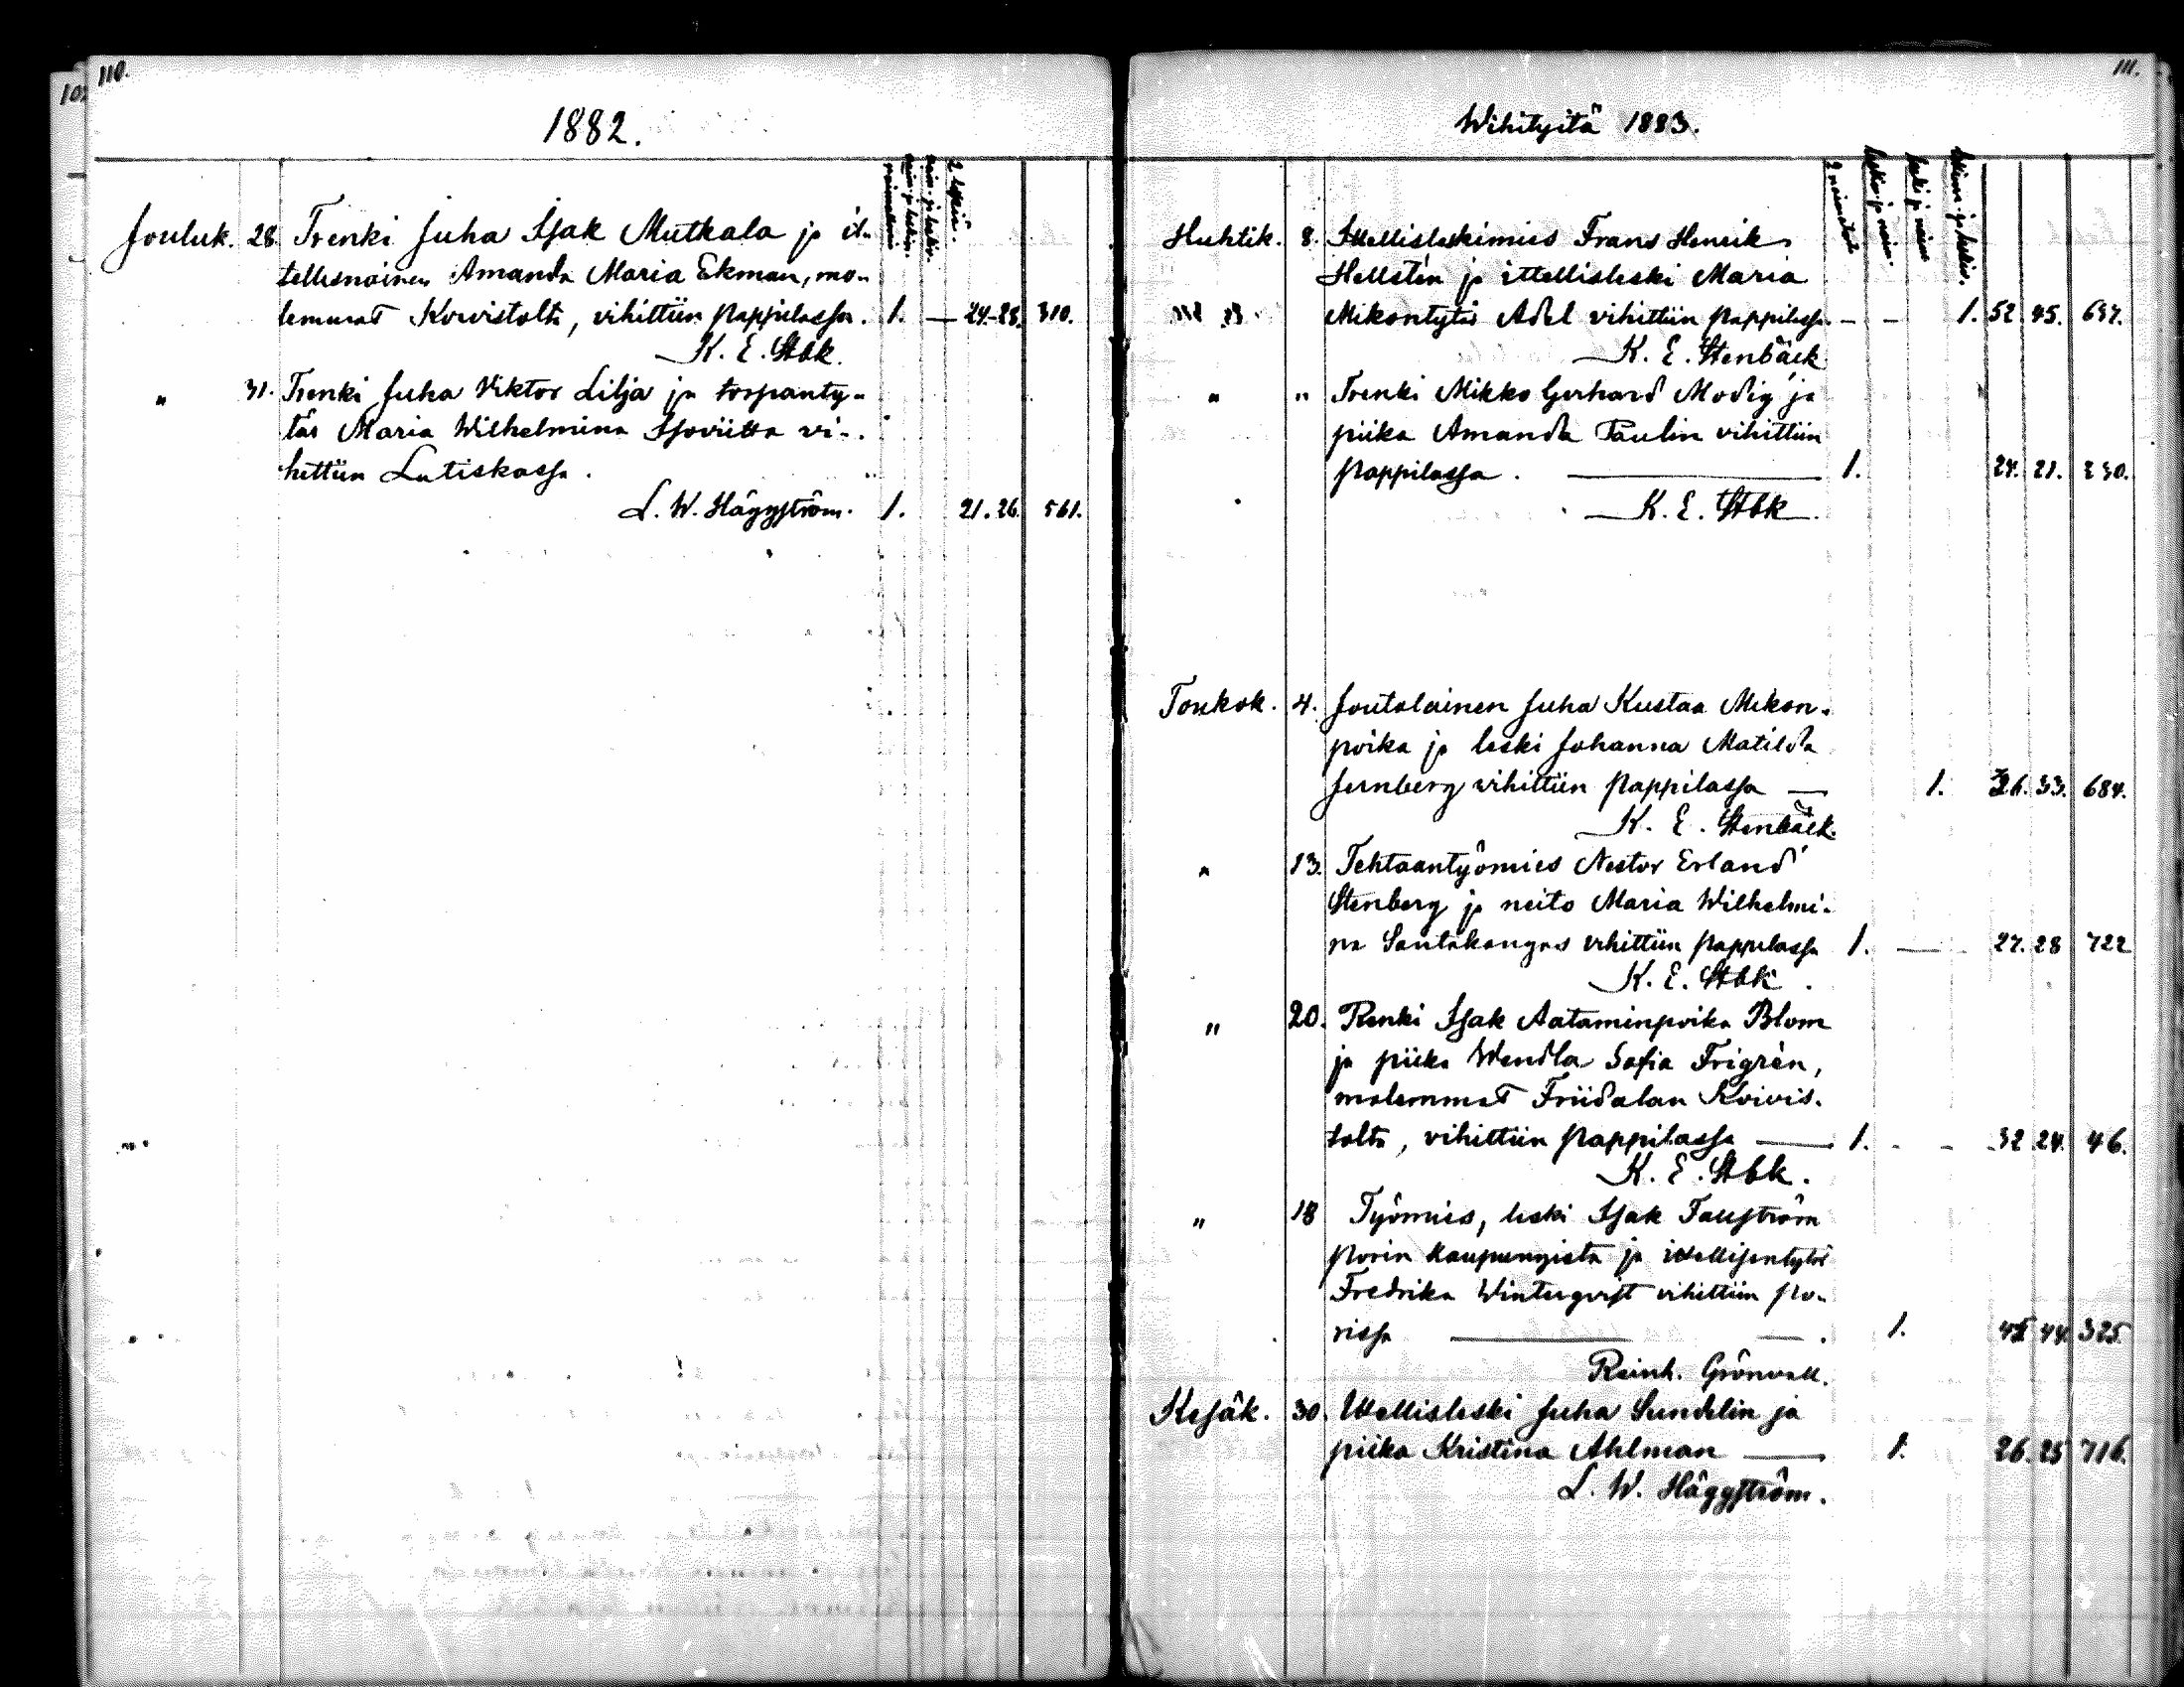 110.
1882.
Jouluk. 28. Trenki Juha Isak Mutkala ja it-
tellisnainen Amanda Maria Ekman, mo-
lemmat Koivistolta, vihittiin Pappilassa. 1. — 24. 28. 310.
K. E. Stbk.
" 31. Trenki Juha Viktor Lilja ja torpanty-
tär Maria Wilhelmina Isoviitta vi-
hittiin Lutiskassa.
L. W. Häggström. 1. 21. 26. 561.
111.
Wihityitä 1883.
Huhtik. 8. Ittellisleskimies Frans Henrik
Hellstén ja ittellisleski Maria
Mikontytär Adel vihittiin Pappilassa. — – 1. 52 45. 637.
K. E. Stenbäck
" " Trenki Mikko Gerhard Modig ja
piika Amanda Paulin vihittiin
Pappilassa. — 1. 24. 21. 230.
K. E. Stbk.
Toukok. 4. Joutolainen Juha Kustaa Mikon-
poika ja leski Johanna Matilda
Jernberg vihittiin Pappilassa — 1. 26. 33. 684.
K. E. Stenbäck.
" 13. Tehtaantyömies Nestor Erland
Stenberg ja neito Maria Wilhelmi-
na Santakangas vihittiin Pappilassa 1. — 27. 28 722
K. E. Stbk.
" 20. Renki Isak Aataminpoika Blom
ja piika Wendla Sofia Frigrèn,
molemmat Friidalan Koivis-
tolta, vihittiin Pappilassa — 1. - - 32 24. 46.
K. E. Stbk.
" 18 Työmies, leski Isak Fallström
Porin kaupungista ja ittellisentytär
Fredrika Winterqvist vihittiin Po-
rissa — — . 1. 44. 325.
Reinh. Grönvall.
Kesäk. 30. Ittellisleski Juha Sundelin ja
piika Kristina Ahlman — 1. 26. 25 716.
L. W. Häggström.